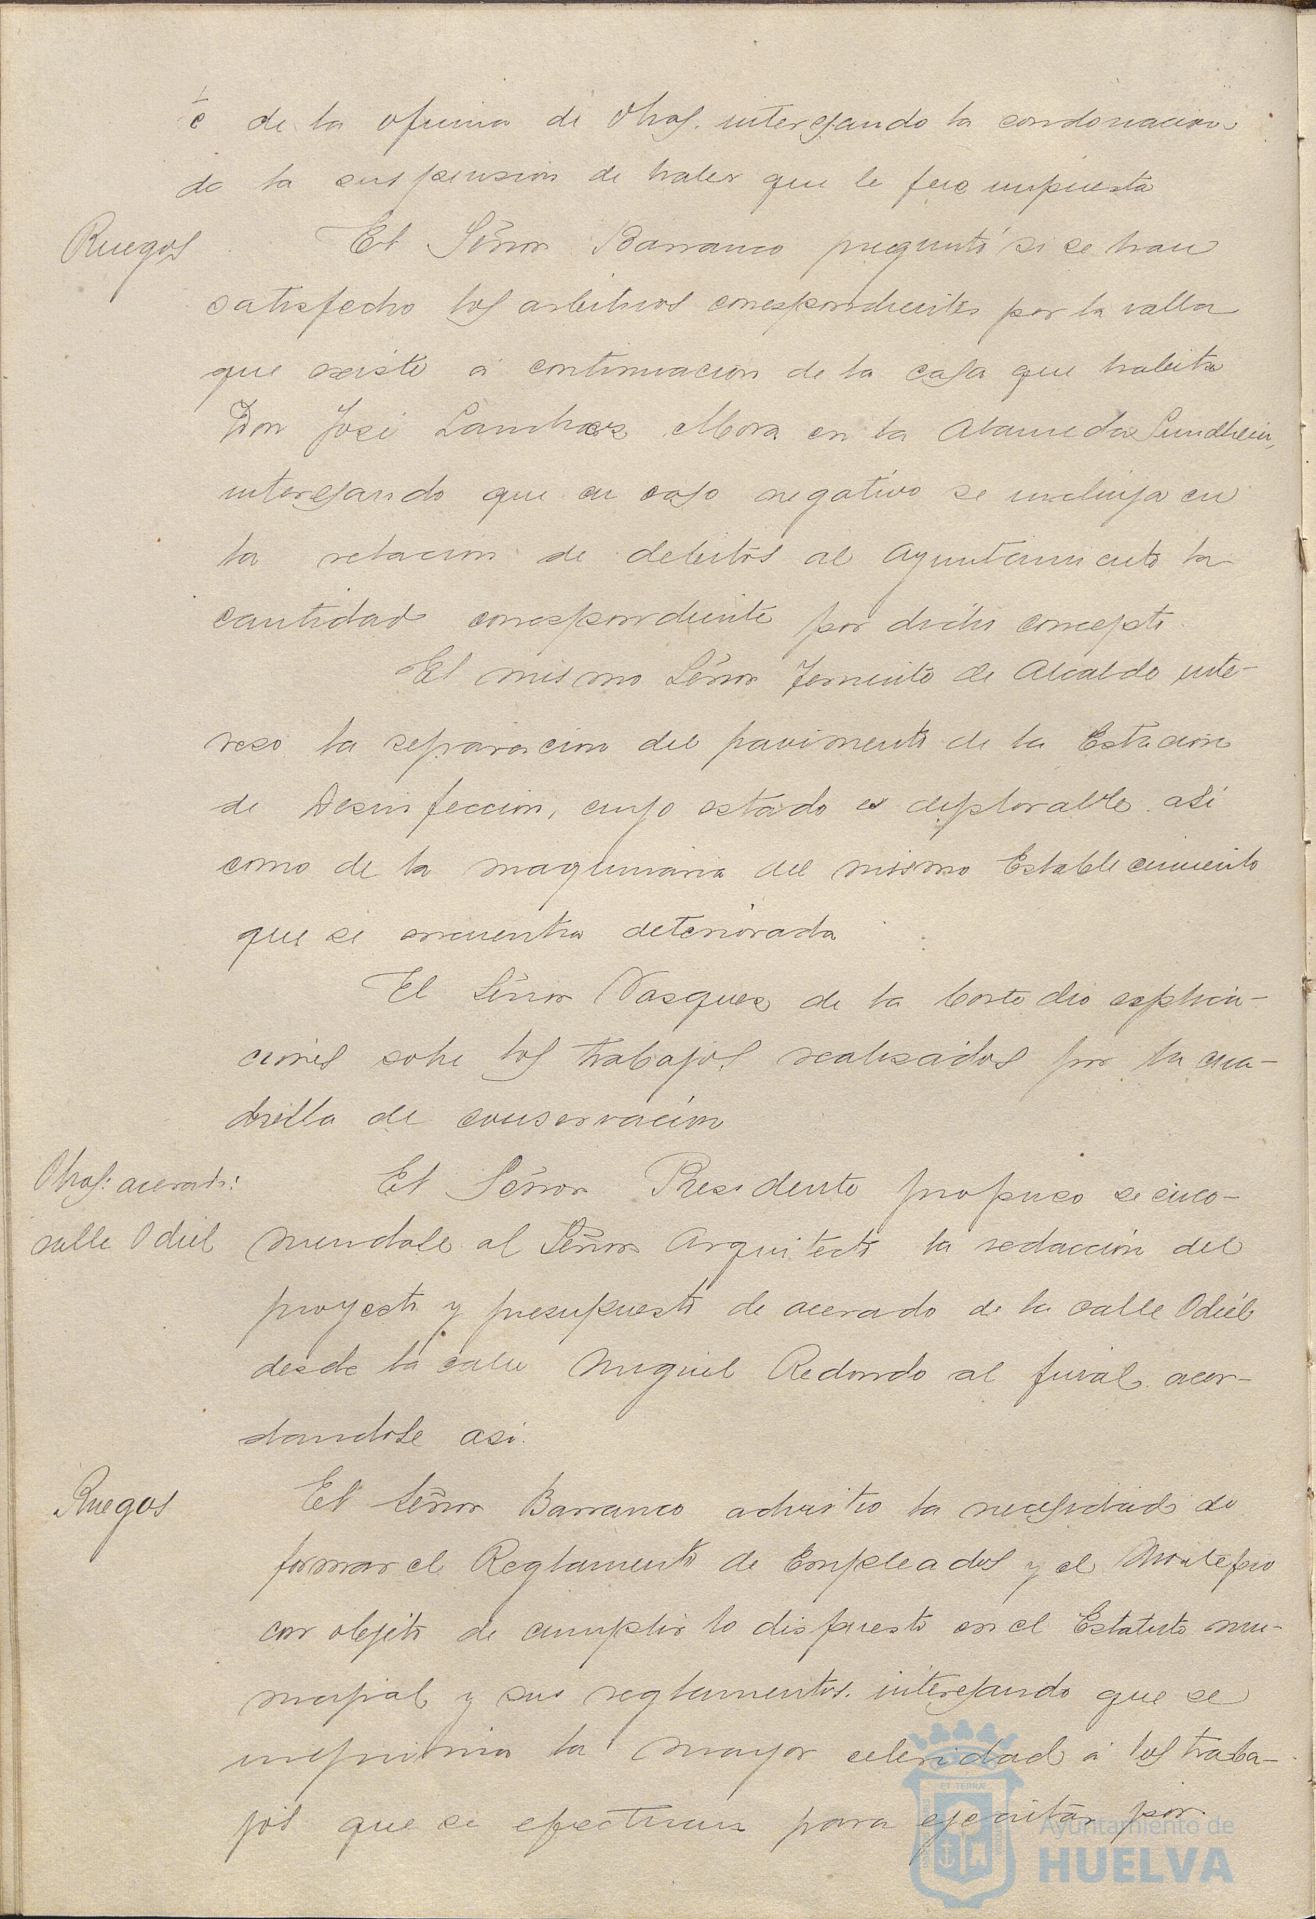 de la oficina de Obras. interesando la condonacion
de la suspension de haber que le fue impuesta
Ruegos
El Señor Barranco preguntó si se han
satisfecho los arbitrios correspondientes por la valla
que existe a continuacion de la casa que habita
Don José Mora en la Alameda Sundheim,
interesando que en caso negativo se incluya en
la relacion de debitos al Ayuntamiento la
cantidad correspondiente por dicho concepto.
El mismo Señor Teniente de Alcalde inte-
reso la reparacion del pavimento de la Estacion
de Desinfeccion, cuyo estado es deplorable asi
como de la maquinaria del mismo Establecimiento
que se encuentra deteriorada
El Señor Vasquez de la Corte dio explica-
ciones sobre los trabajos. realizados por la cua-
drilla de conservacion
Obras: acerado:
calle Odiel
El Señor Presidente propuso se enco-
mendase al Señor Arquitecto la redacción del
proyecto y presupuesto de acerado de la calle Odiel
desde la calle Miguel Redondo al final acor-
dandose asi.
Ruegos
El Señor Barranco advirtio la necesidad de
formar el Reglamento de Empleados y el Montepio
con objeto de cumplir lo dispuesto en el Estatuto mu-
nicipal y sus reglamentos. interesando que se
imprima la mayor celeridad á los traba-
jos que se efectuan para ejecutar por
ET TERRÆ
Ayuntamiento de
HUELVA